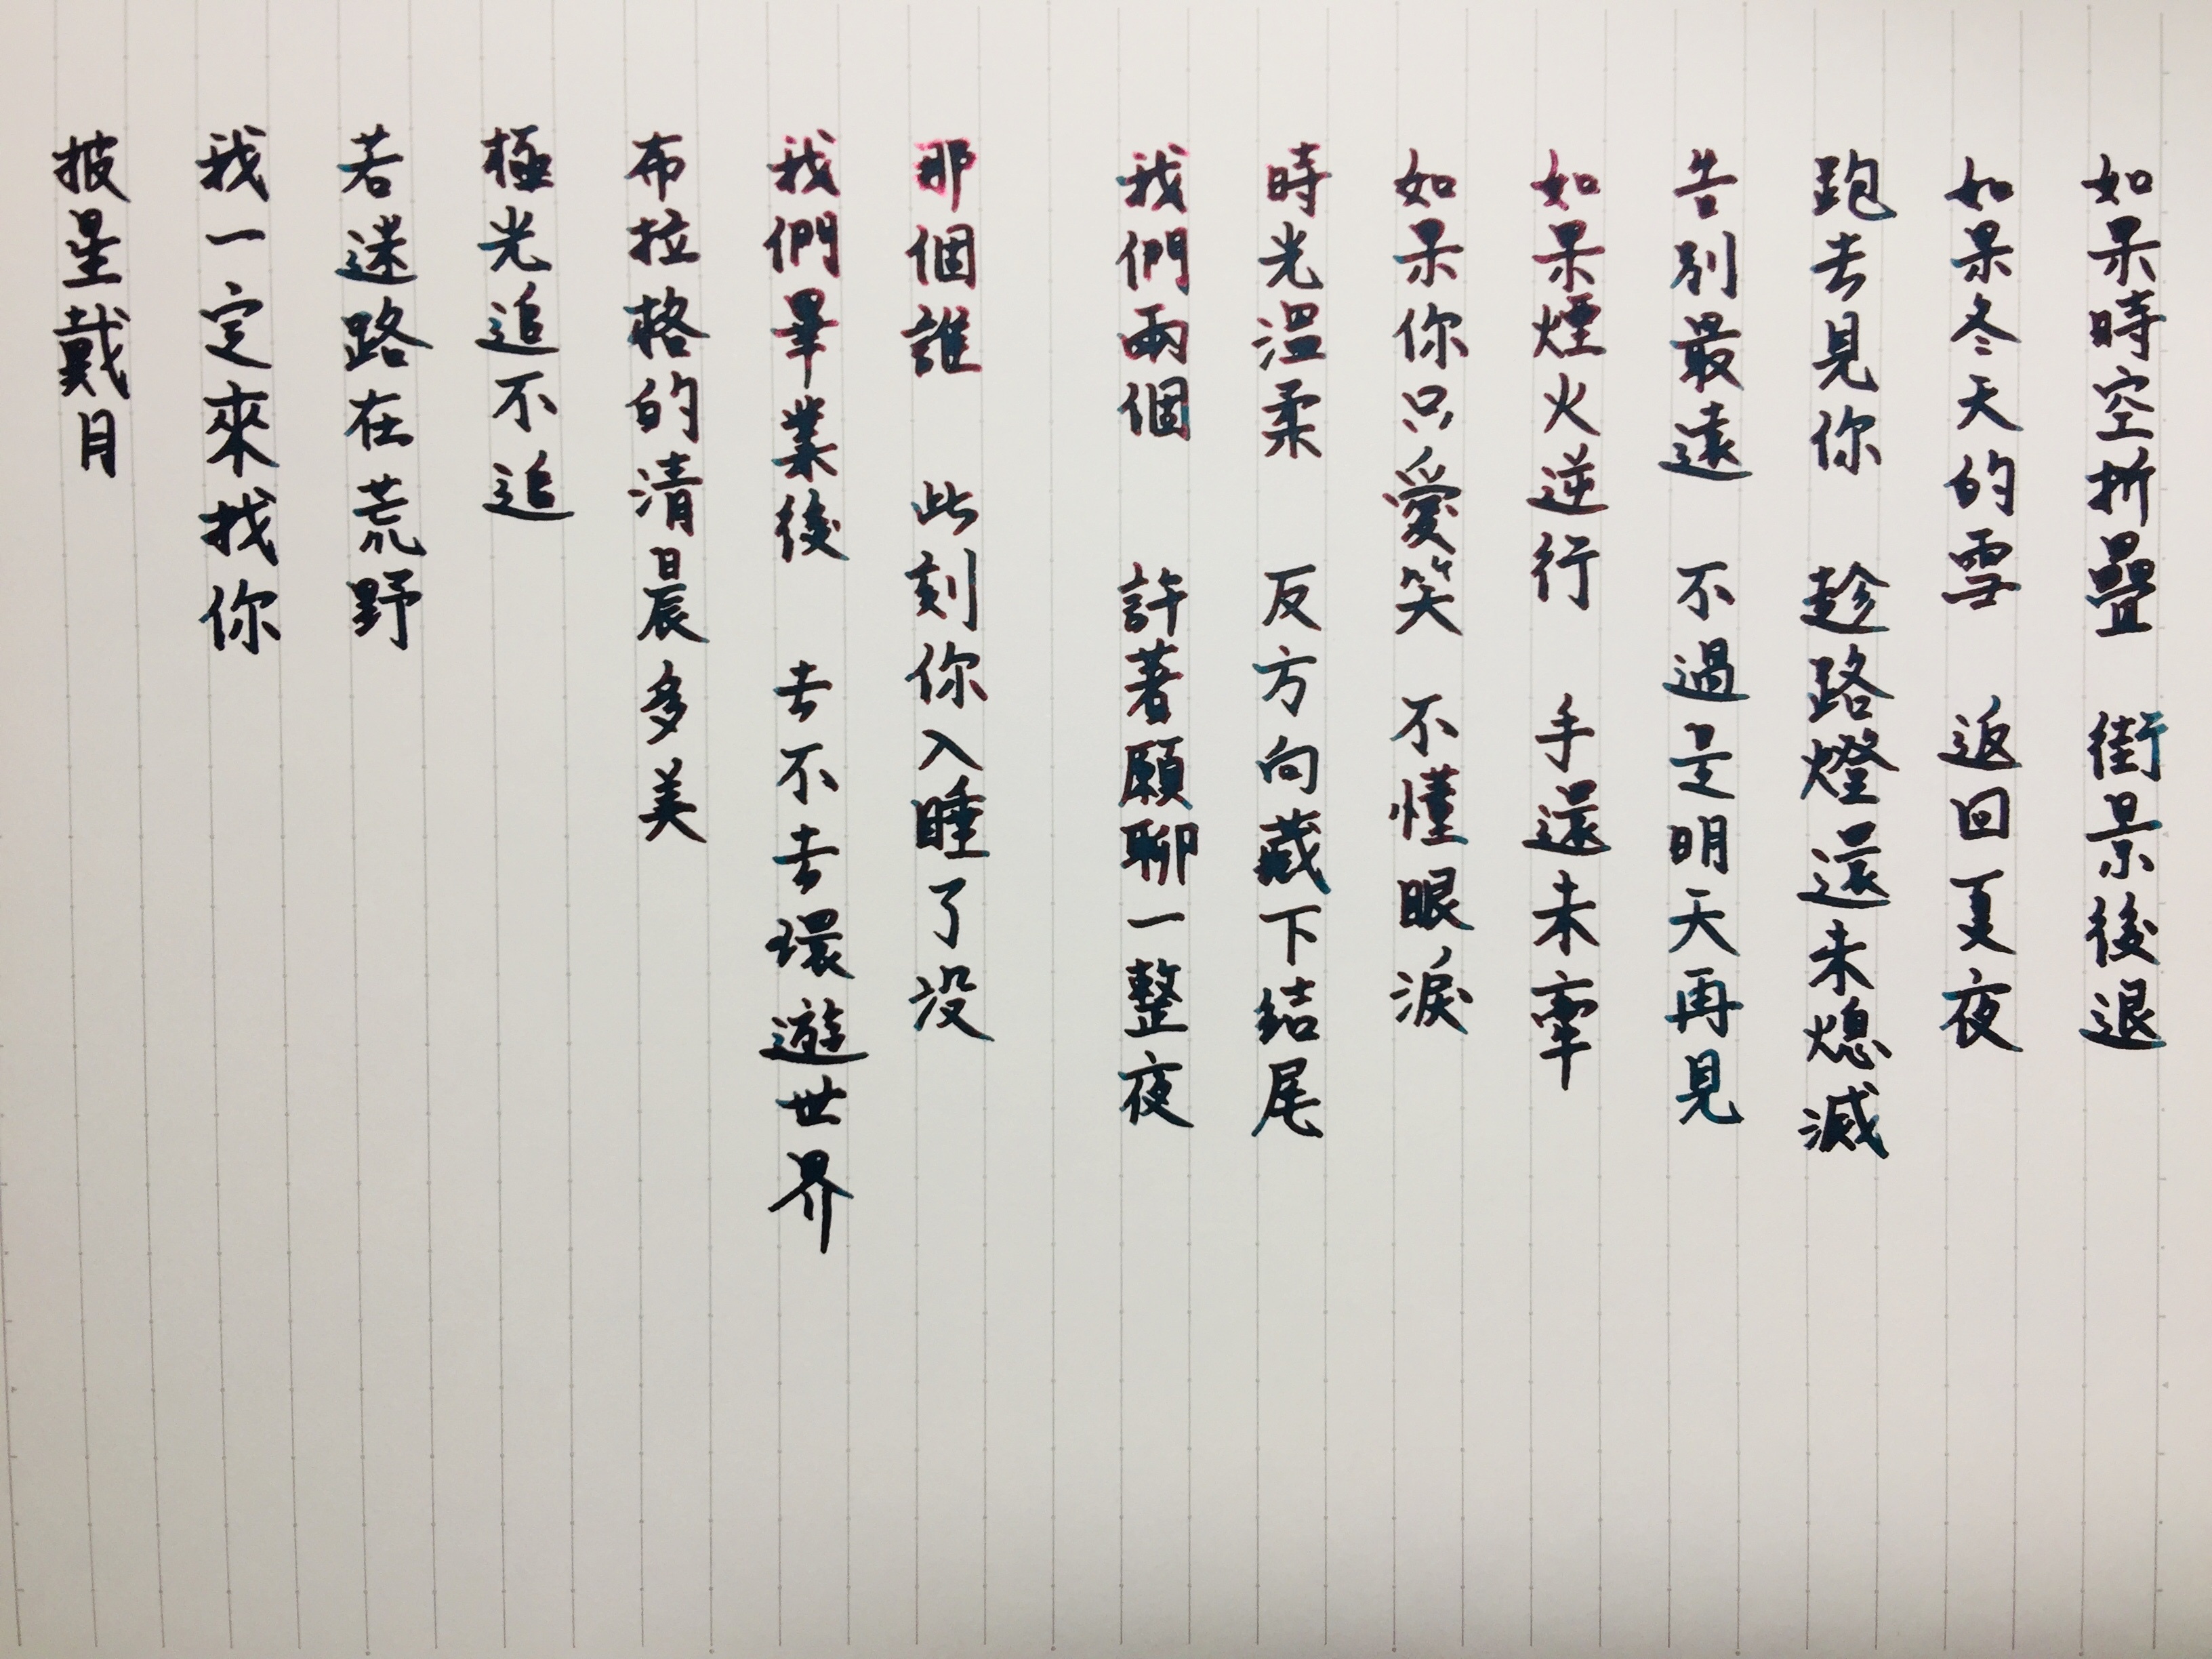 如果時空折疊 街景後退
如果冬天的雪 返回夏夜
跑去見你 趁路燈還未熄滅
告別最遠 不過是明天再見
如果煙火逆行 手還未牽
如果你只愛笑 不懂眼淚
時光溫柔 反方向藏下結尾
我們兩個 許著願聊一整夜
那個誰 此刻你入睡了没
我們畢業後 去不去環遊世界
布拉格的清晨多美
極光追不追
若迷路在荒野
我一定來找你
披星戴月